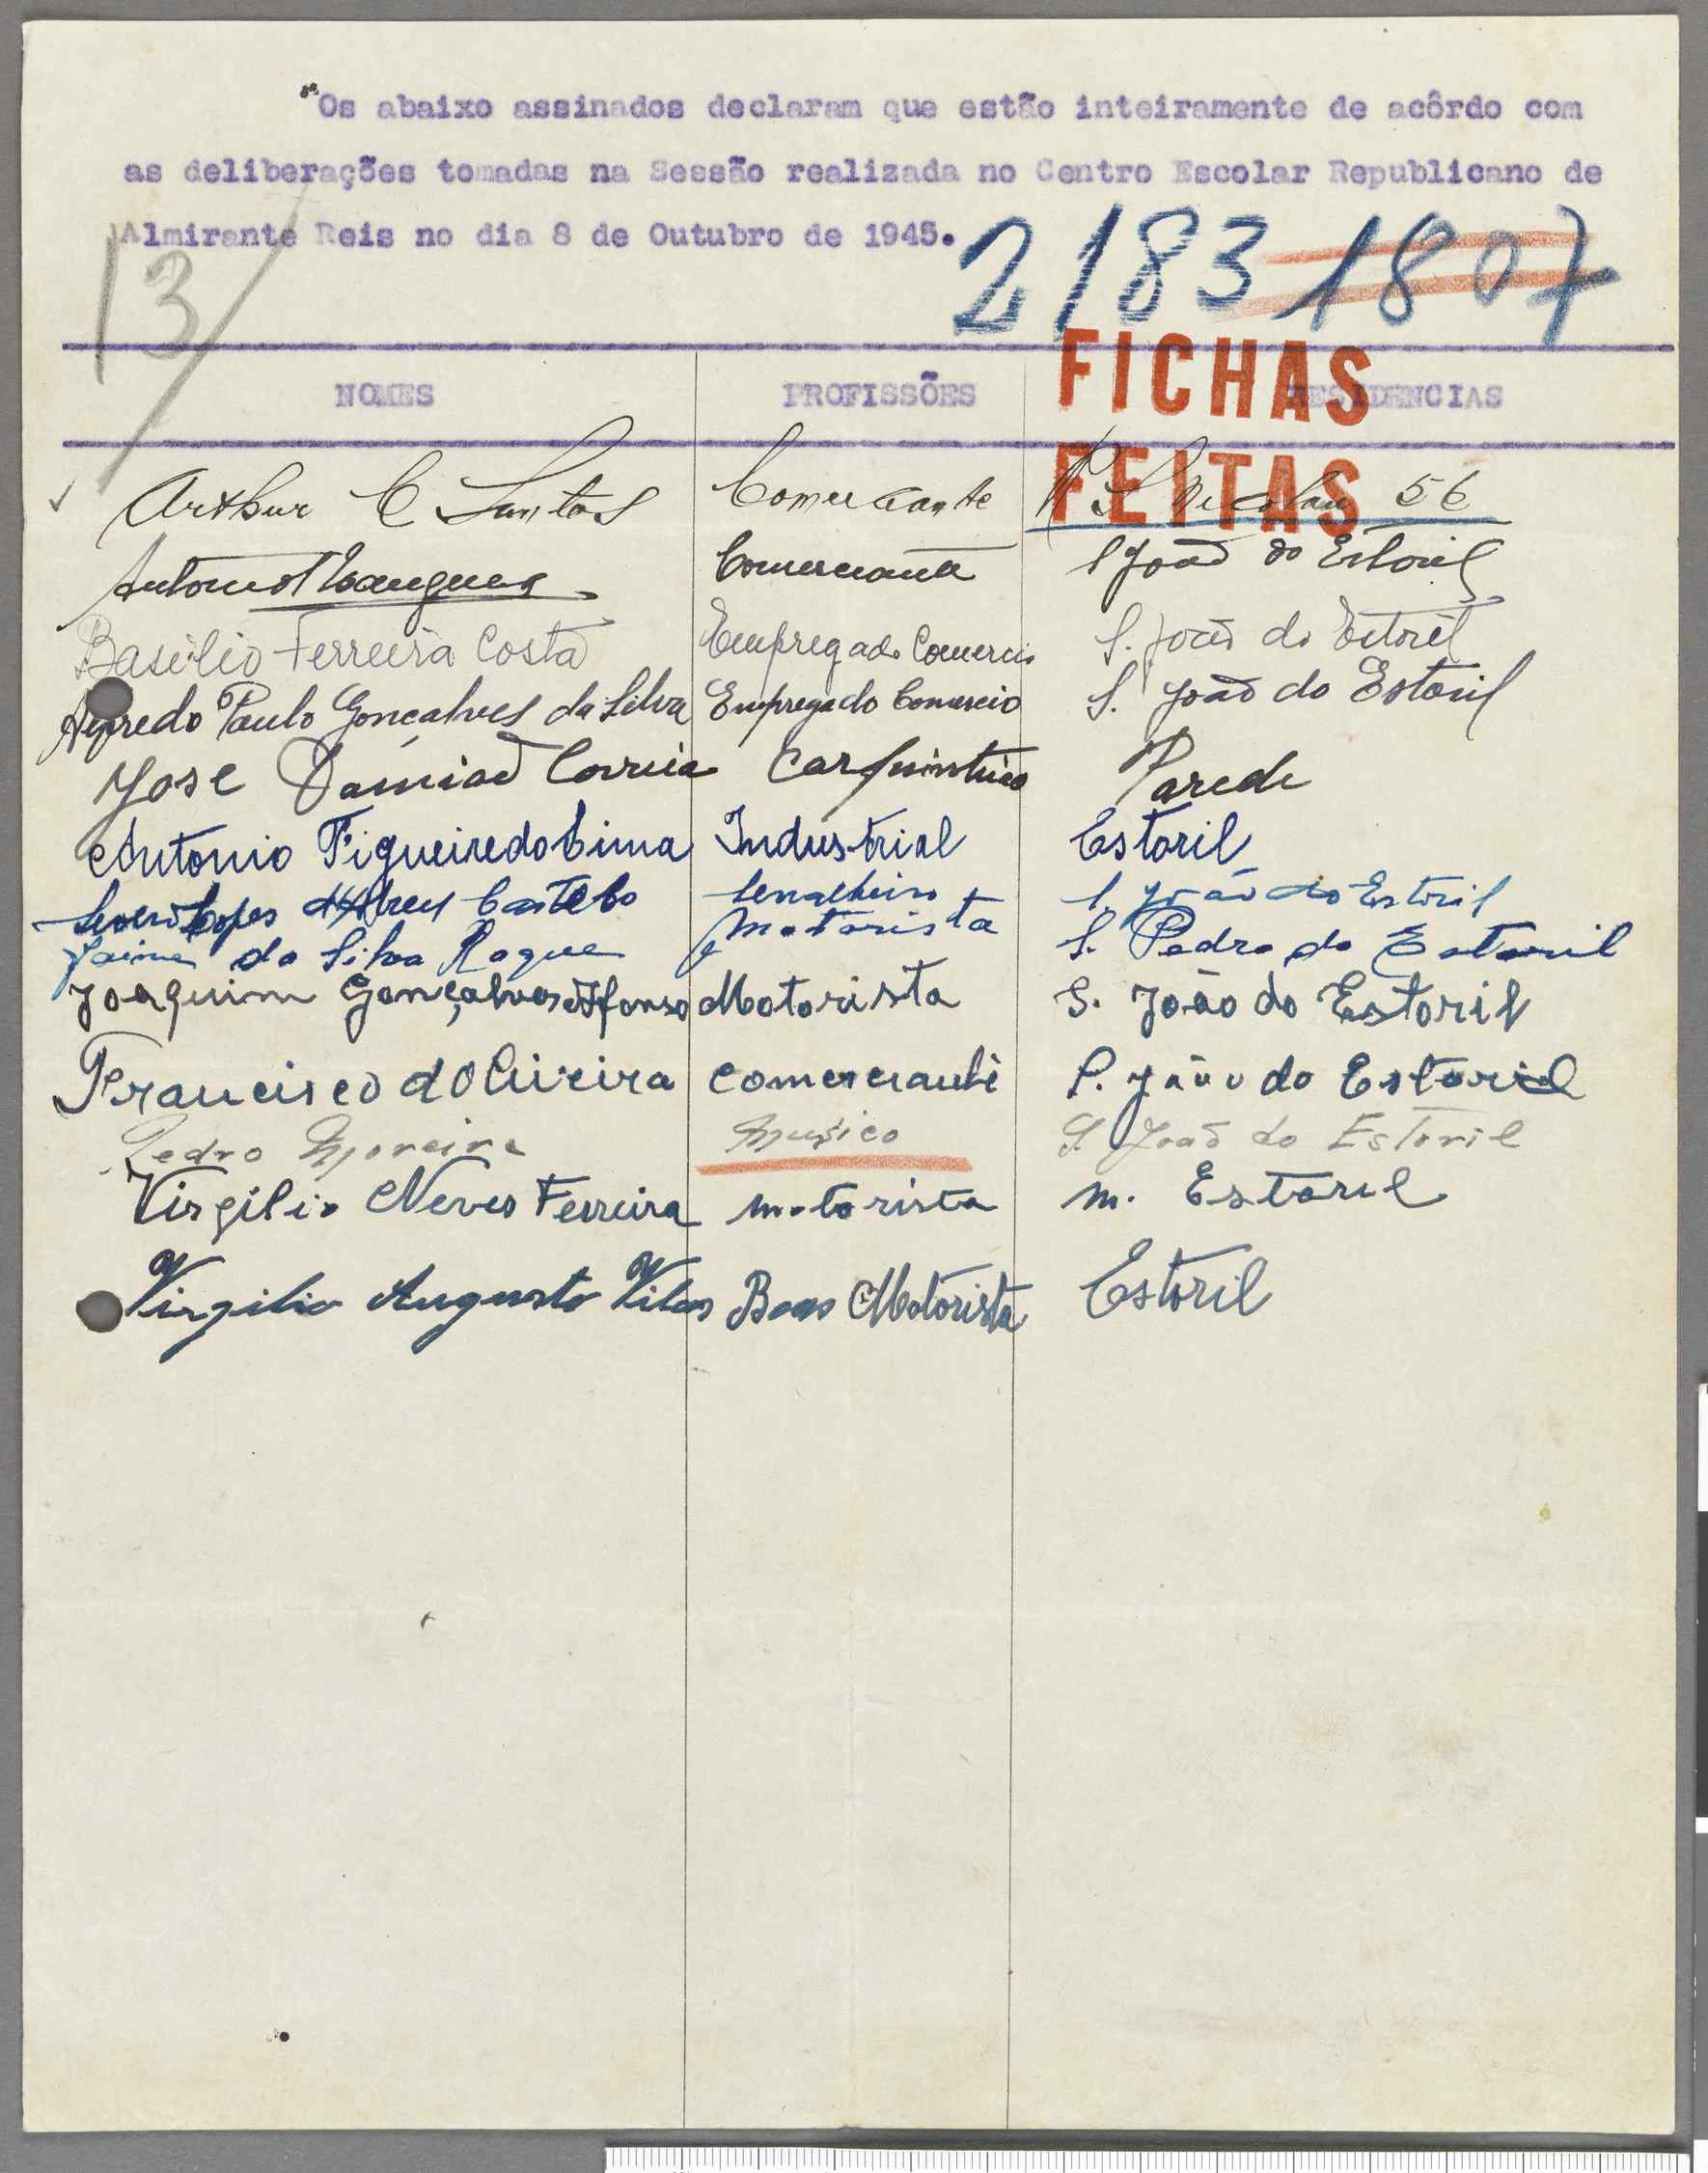 "Os abaixo assinados declaram que estão inteiramente de acôrdo com
as deliberações tomadas na Sessão realizada no Centro Escolar Republicano de
Almirante Reis no dia 8 de Outubro de 1945.
13/
2183 1807
FICHAS
FEITAS
NOMES PROFISSÕES RESIDENCIAS
Arthur C Santos Comerciante R. S. Nicolau 56
Antonio Comerciante S João do Estoril
Basilio Ferreira Costa Empregado Comercio S. João do Estoril
Alfredo Paulo Gonçalves da Silva Empregado Comercio S. João do Estoril
José Damião Correia Carpinteiro Parede
Antonio Figueiredo Lima Industrial Estoril
Lopes d'Abreu Castelo Serralheiro S. João do Estoril
Jaime da Silva Roque Motorista S. Pedro do Estoril
Joaquim Gonçalves Afonso Motorista S. João do Estoril
Francisco d'Oliveira comerciante S. João do Estoril
Pedro Moreira Musico S. João do Estoril
Virgilio Neves Ferreira motorista m. Estoril
Virgilio Augusto Vilas Boas Motorista Estoril